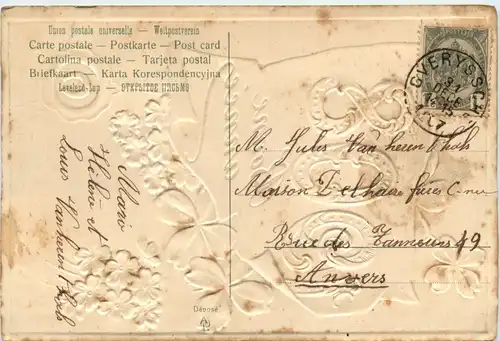 Union postale universelle — Weltpostverein
Carte postale — Postkarte — Post card
Cartolina postale — Tarjeta postal
Briefkaart — Karta Korespondencyjna
Levelező-Lap — ОТКРЫТОЕ ПИСЬМО
Marie
Helena et
Louis Vanheren
M. Jules Vanheren
Maison Delhaize frères
Rue des Tanneurs 49
Anvers
Déposé
OVERYSSCHE
31
DEC
7